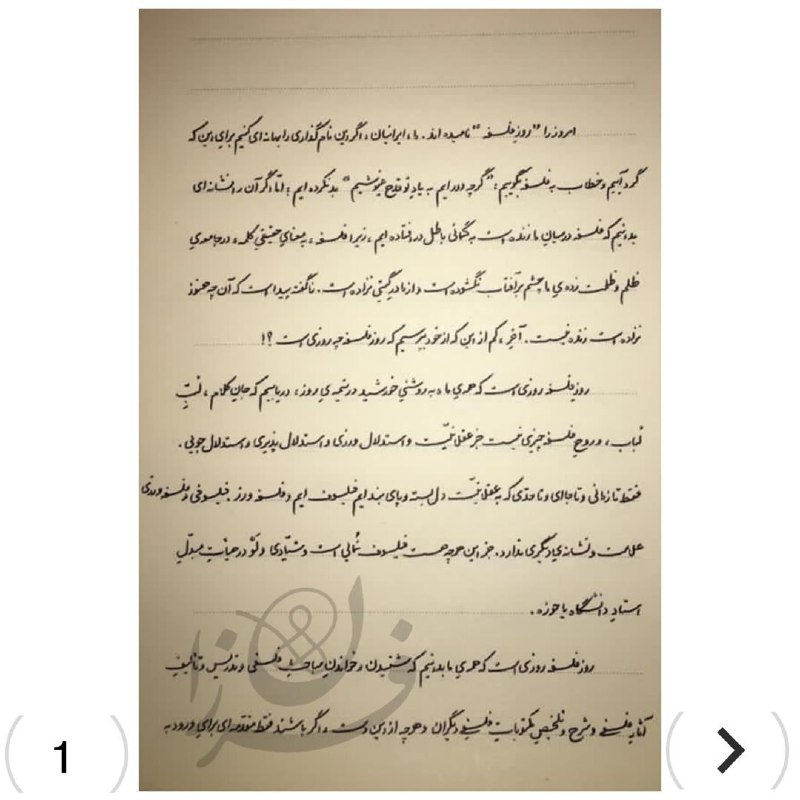 امروز را "روز فلسفه" نامیده اند. ما، ایرانیان، اگر این نام گذاری را بهانه ای کنیم برای این که
گرد آییم و خطاب به فلسفه بگوییم: "گرچه دوریم به یاد تو قدح می نوشیم" بد نکرده ایم؛ امّا اگر آن را نشانه ای
بدانیم که فلسفه در میان ما زنده است به گمانی باطل درافتاده ایم، زیرا فلسفه، به معنای حقیقی کلمه، در جامعه ی
ظلم و ظلمت زده ی ما چشم بر آفتاب نگشوده است و از مادر گیتی نزاده است. ناگفته پیداست که آن چه هنوز
نزاده است زنده نیست. آخر، کم از این که از خود بپرسیم که روز فلسفه چه روزی است؟!
روز فلسفه روزی است که همه ی ما، به روشنی خورشید در نیمه ی روز، دریابیم که جان کلام، لُبّ
لُباب، و روح فلسفه چیزی نیست جز عقلانیّت و استدلال ورزی و استدلال پذیری و استدلال جویی.
فقط تا زمانی و تا جایی و تا حدّی که به عقلانیّت دل بسته و پای بندیم فیلسوف ایم و فلسفه ورز. فیلسوفی و فلسفه ورزی
علامت و نشانه ی دیگری ندارد. جز این هر چه هست فیلسوف نُمایی است و شیّادی وَلَو در هیأت مبدّل
استاد دانشگاه یا حوزه.
روز فلسفه روزی است که همه ی ما بدانیم که شنیدن و خواندن مباحث فلسفی و تدریس و تألیف
آثار فلسفی و شرح و تلخیص مکتوبات فلسفی دیگران و هر چه از این دست، اگر باشند فقط مقدّمه ای برای ورود به
فرزان
1